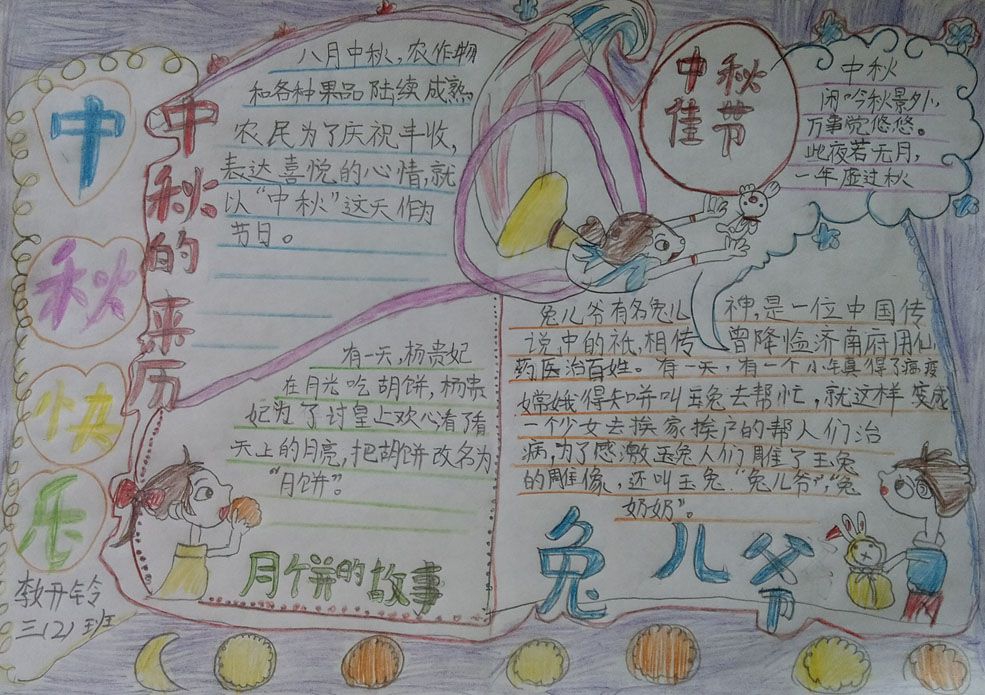 中
秋
快
乐
三(2)班
中秋的来历
八月中秋,农作物
和各种果品陆续成熟。
农民为了庆祝丰收,
表达喜悦的心情,就
以“中秋”这天作为
节日。
中秋
佳节
中秋
闲吟秋景外,
万事觉悠悠。
此夜若无月,
一年虚过秋
有一天,杨贵妃
在月光吃胡饼,杨贵
妃为了讨皇上欢心看了看
天上的月亮,把胡饼改名为
“月饼”。
月饼的故事
兔儿爷有名兔儿神,是一位中国传
说中的祇,相传曾降临济南府用仙
药医治百姓。有一天,有一个小得了瘟疫
嫦娥得知并叫玉兔去帮忙,就这样变成
一个少女去挨家挨户的帮人们治
病,为了感激玉兔人们雕了玉兔
的雕像,还叫玉兔“兔儿爷”,“兔
奶奶”。
兔儿爷
节